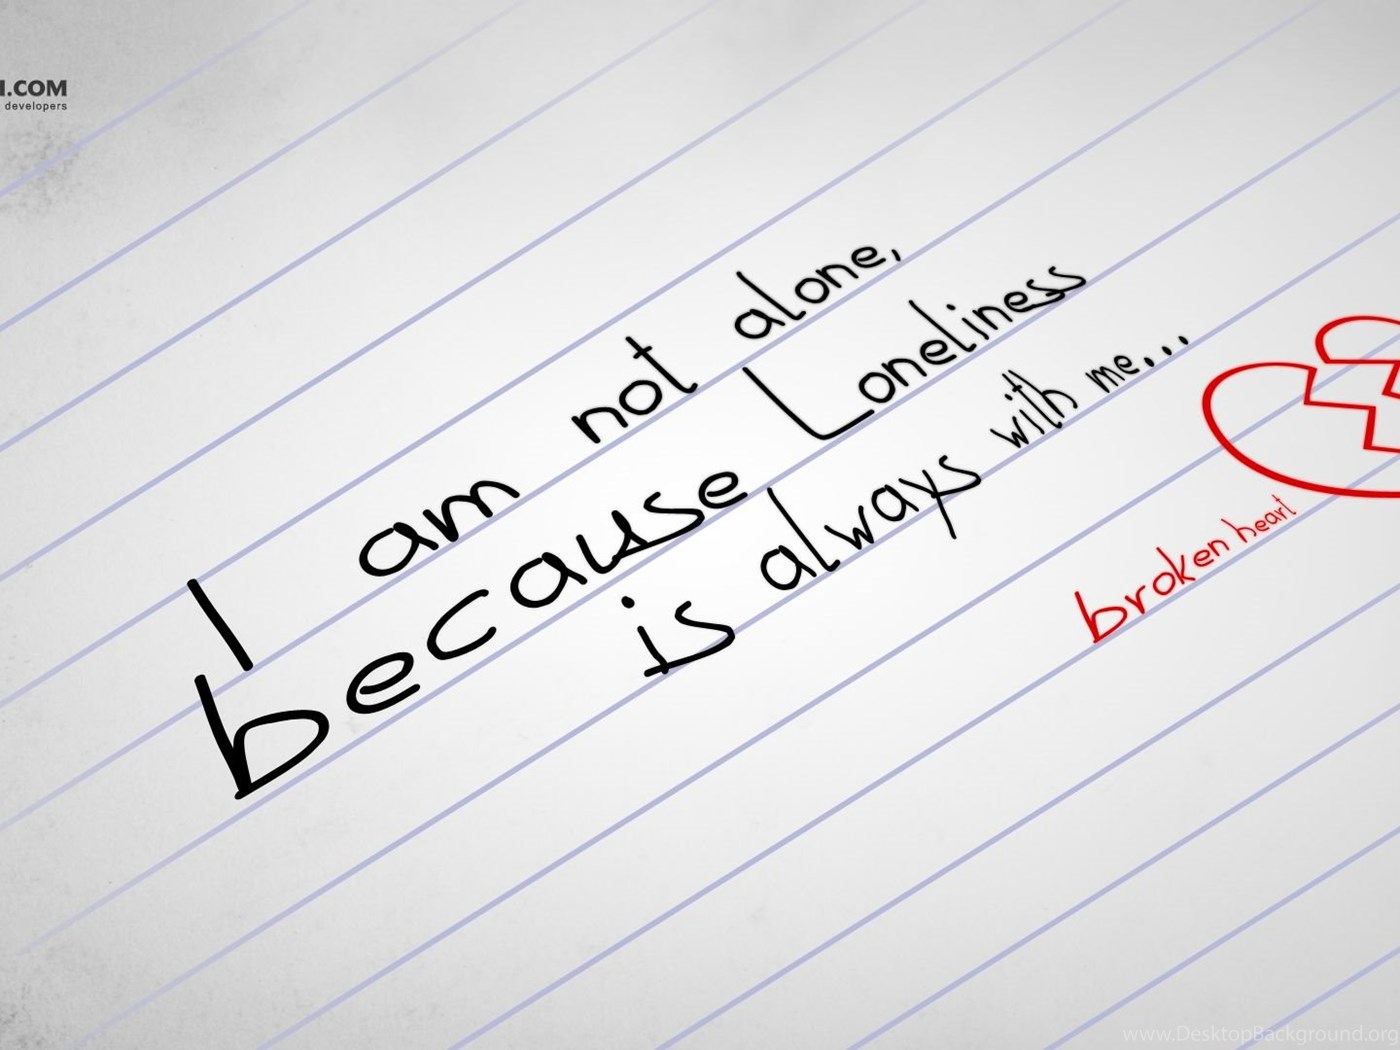 .COM
developers
I am not alone,
because Loneliness
is always with me...
broken heart
www.DesktopBackground.org